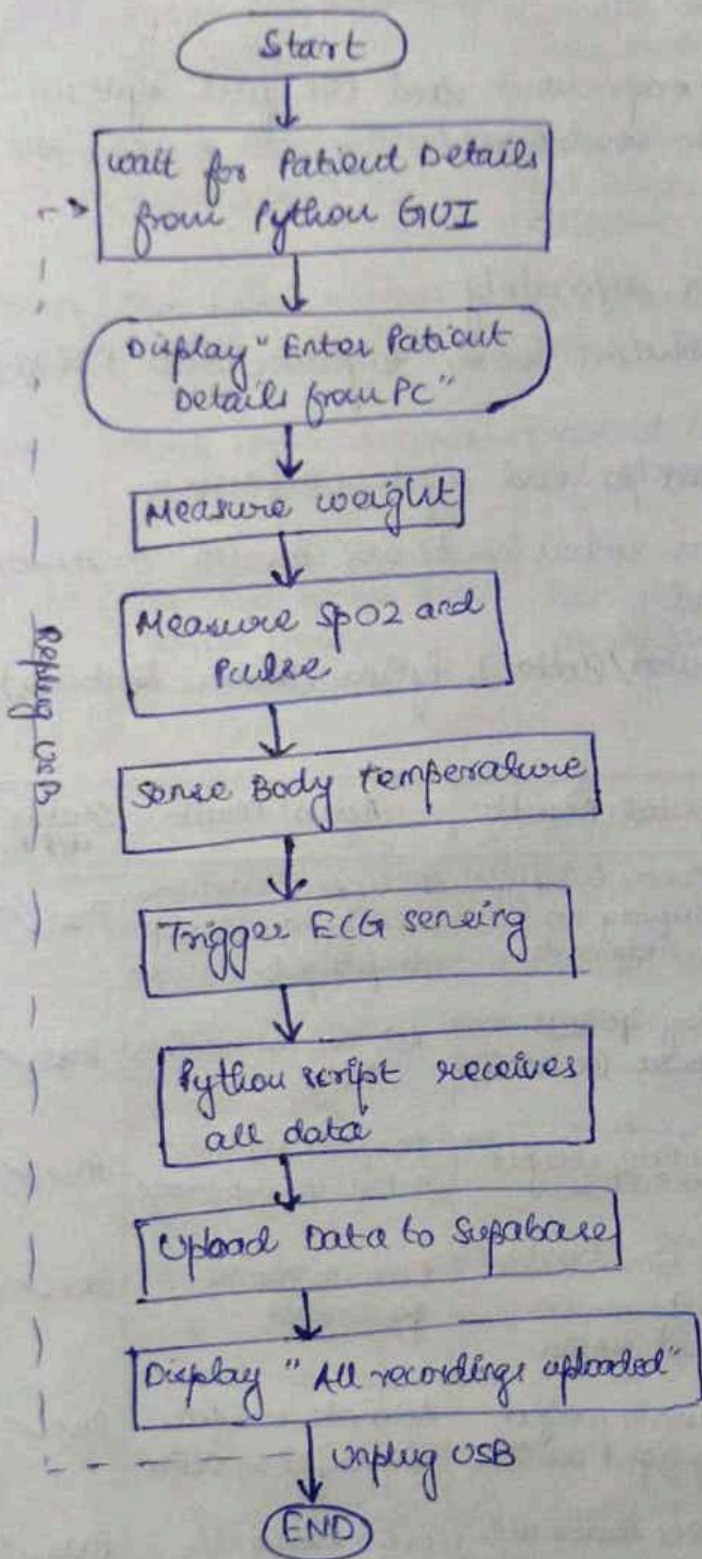 Start
Wait for Patient Details
from Python GUI
Display "Enter Patient
Details from PC"
Measure weight
Measure SpO2 and
Pulse
Sense Body temperature
Trigger ECG sensing
Python script receives
all data
Upload Data to Supabase
Display "All recordings uploaded"
Unplug USB
END
Replug USB